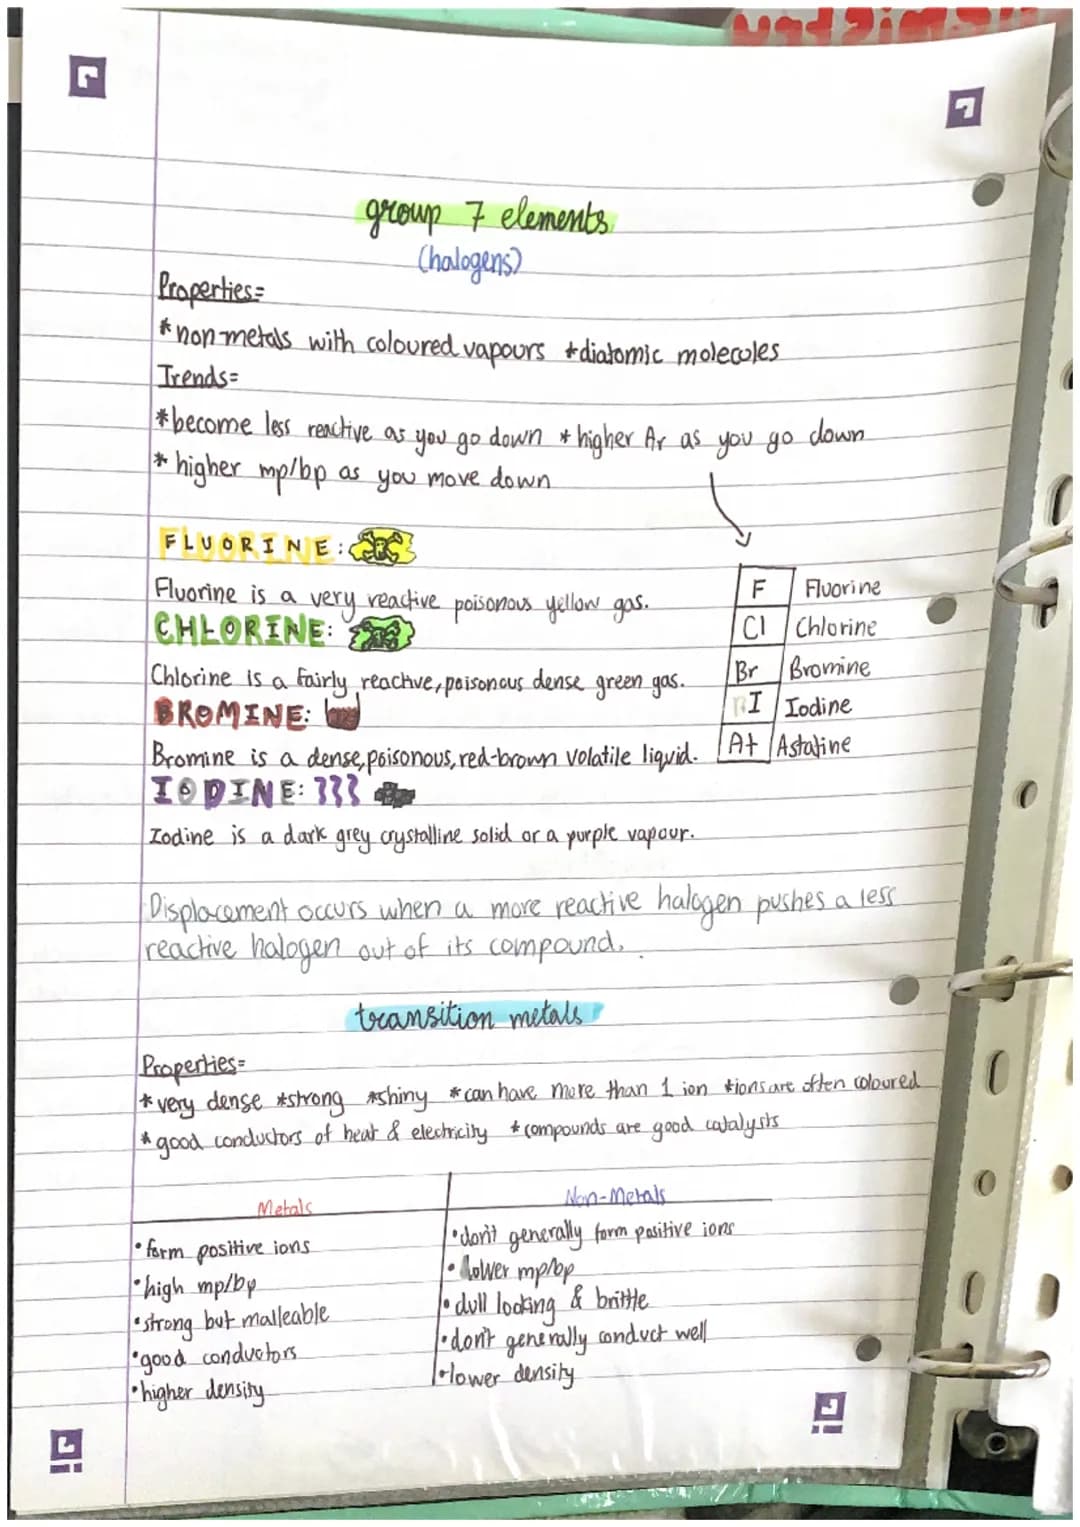 group 7 elements
(halogens)
Properties=
*non-metals with coloured vapours *diatomic molecules
Trends=
*become less reactive as you go down *higher Ar as you go down
*higher mp/bp as you move down
FLUORINE:
Fluorine is a very reactive poisonous yellow gas.
CHLORINE:
Chlorine is a fairly reactive, poisonous dense green gas.
BROMINE:
Bromine is a dense, poisonous, red-brown volatile liquid.
IODINE:
Iodine is a dark grey crystalline solid or a purple vapour.
F Fluorine
Cl Chlorine
Br Bromine
I Iodine
At Astatine
Displacement occurs when a more reactive halogen pushes a less
reactive halogen out of its compound.
transition metals
Properties=
*very dense *strong *shiny *can have more than 1 ion *ions are often coloured
*good conductors of heat & electricity *compounds are good catalysts
Metals
•form positive ions
•high mp/bp
•strong but malleable
•good conductors
•higher density
Non-Metals
•don't generally form positive ions
•lower mp/bp
•dull looking & brittle
•don't generally conduct well
•lower density